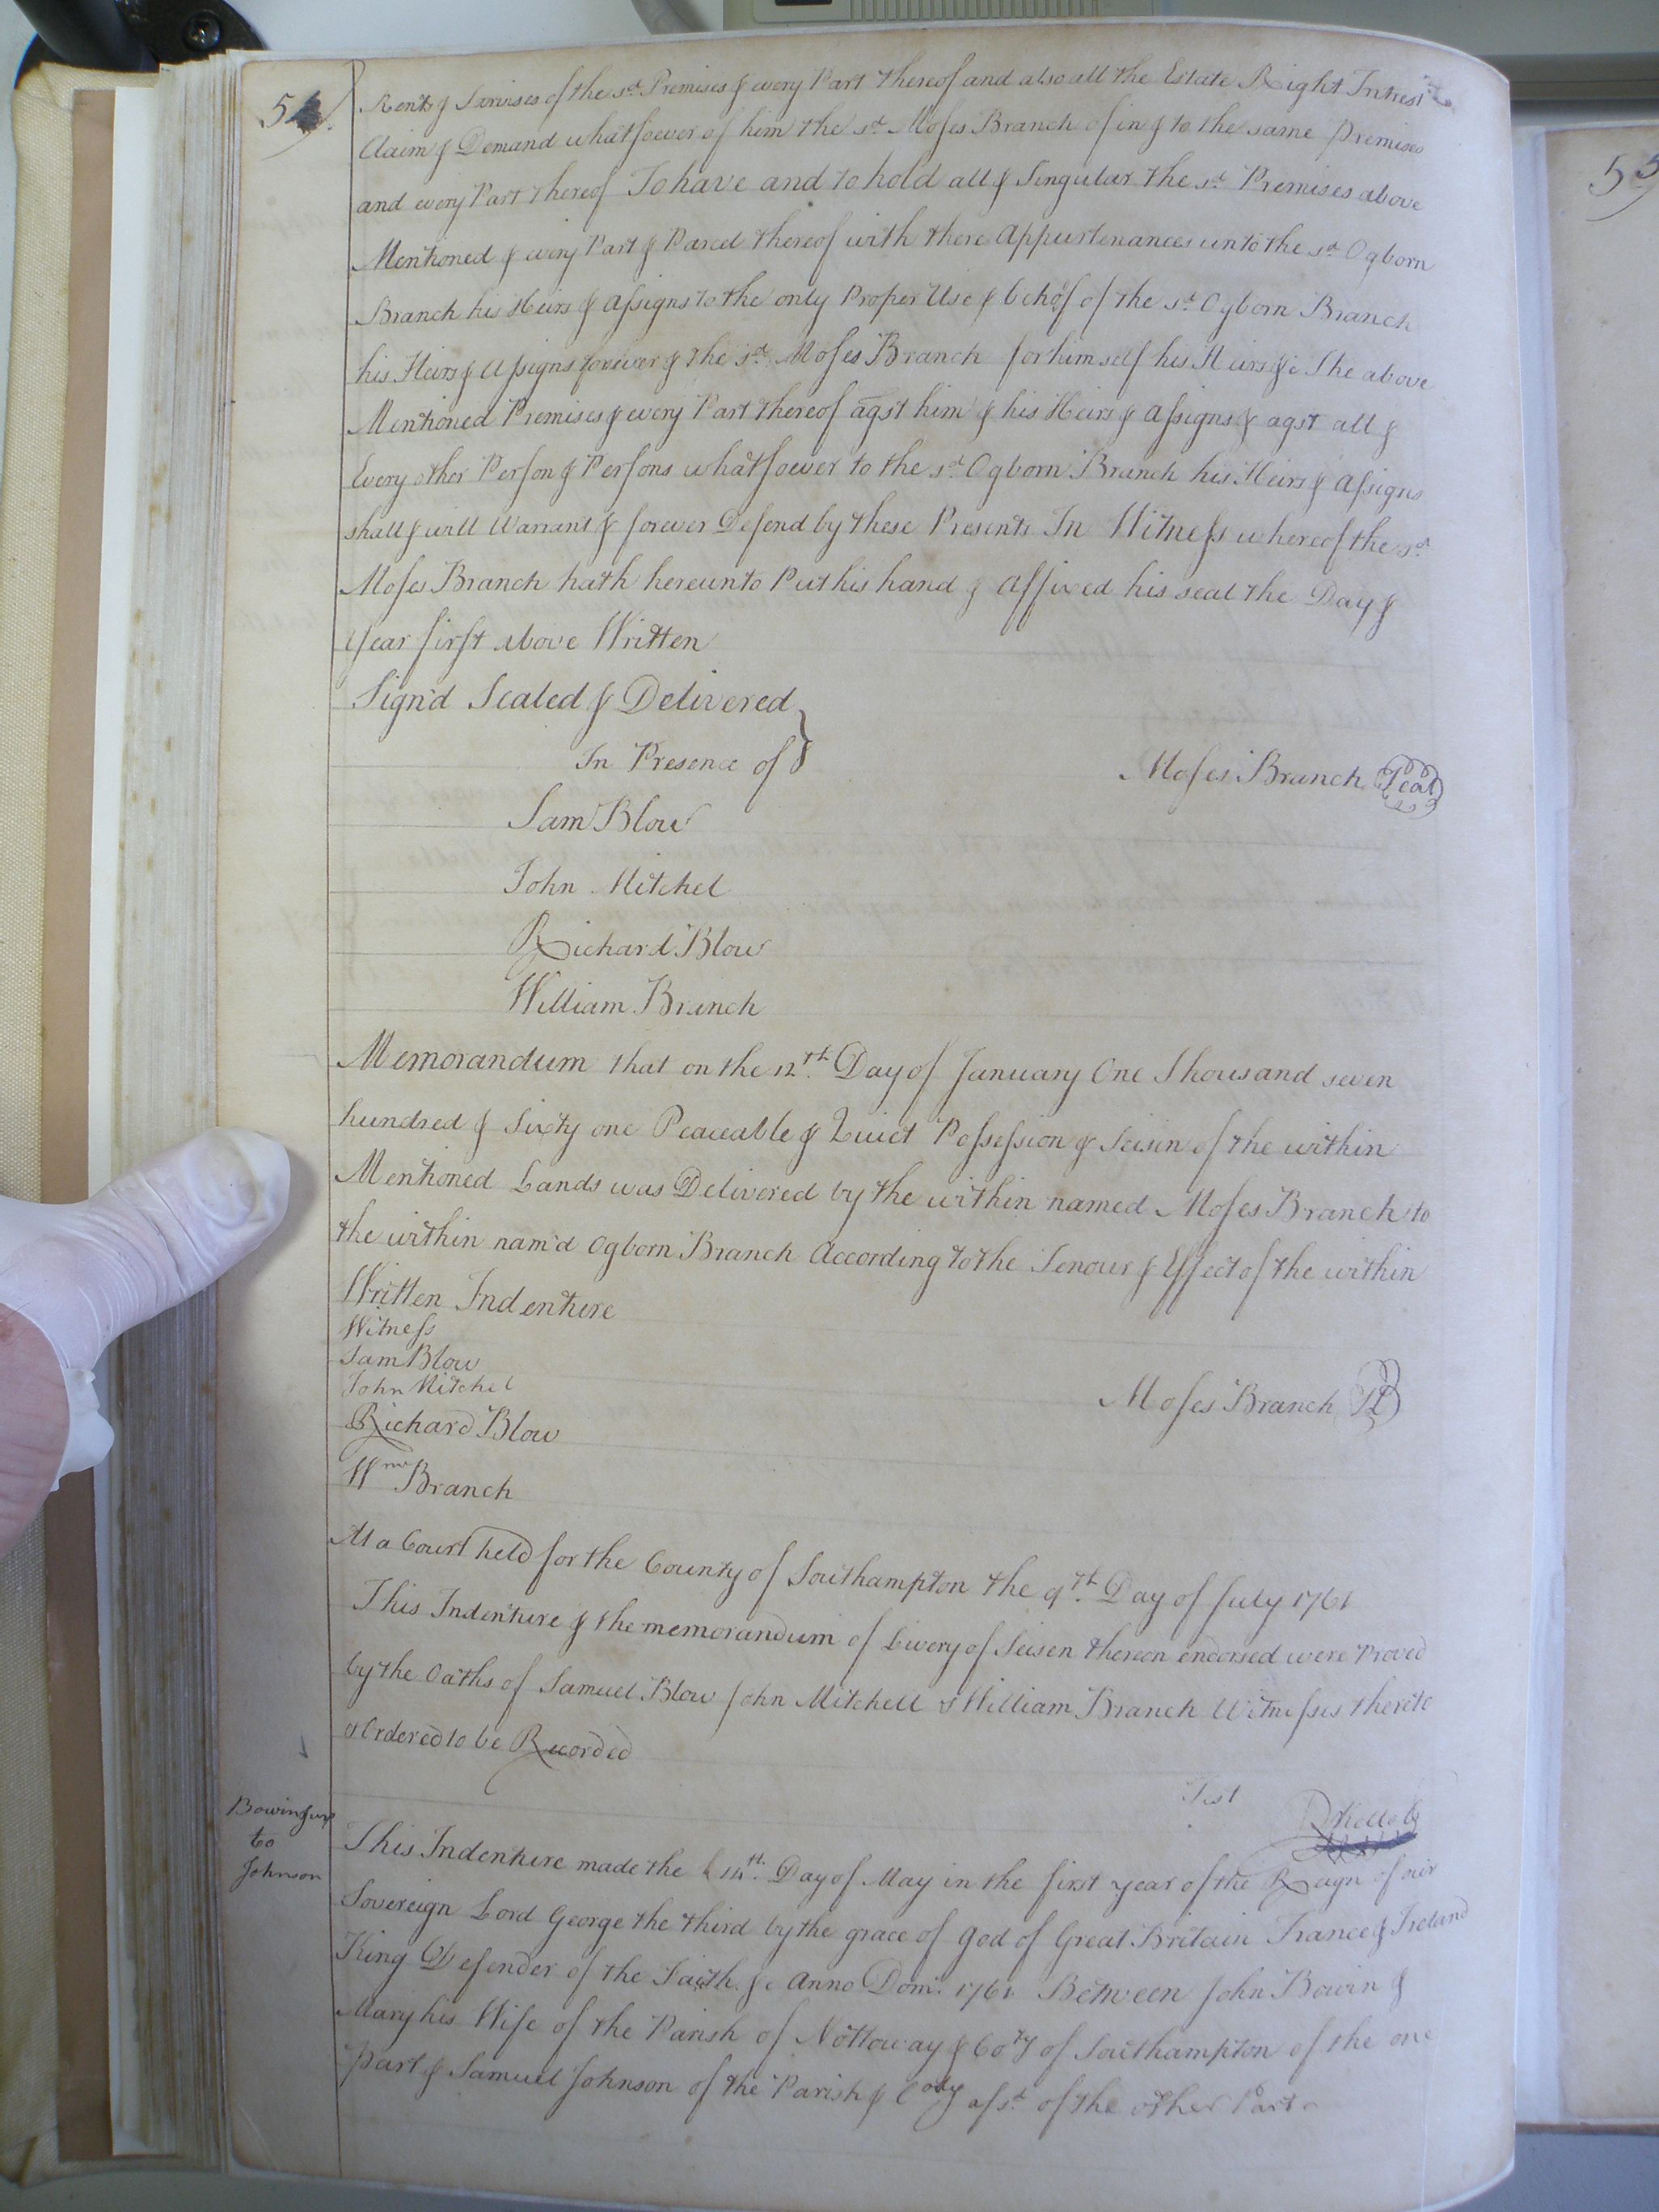 54
Rents & Servises of the sd. Premises & every Part thereof and also all the Estate Right Intrest
Claim & Demand whatsoever of him the sd. Moses Branch of in & to the same premises
and every Part thereof To have and to hold all & Singular the sd. Premises above
Mentioned & every Part & Parcel thereof with there Appurtenances unto the sd. Ogborn
Branch his Heirs & Assigns to the only Proper Use & behof of the sd. Ogborn Branch
his Heirs & Assigns forever & the sd. Moses Branch for himself his Heirs &c The above
Mentioned Premises & every Part thereof agst him & his Heirs & Assigns & agst all &
Every other Person & Persons whatsoever to the sd. Ogborn Branch his Heirs & Assigns
shall & will Warrant & forever Defend by these Presents In Witness whereof the sd.
Moses Branch hath hereunto Put his hand & Affixed his seal the Day &
Year first above Written
Sign'd Sealed & Delivered
In Presence of
Moses Branch Seal
Sam Blow
John Mitchel
Richard Blow
William Branch
Memorandum that on the 12th. Day of January One Thousand seven
hundred & Sixty one Peaceable & Quiet Possession & Seisin of the within
Mentioned Lands was Delivered by the within named Moses Branch to
the within nam'd Ogborn Branch According to the Tenour & Effect of the within
Written Indenture
Witness
Sam Blow
John Mitchel
Moses Branch
Richard Blow
Wm Branch
At a Court held for the County of Southampton the 9th. Day of July 1761
This Indenture & the memorandum of Livery of Seisen thereon endorsed were Proved
by the Oaths of Samuel Blow John Mitchell & William Branch Witnesses thereto
& Ordered to be Recorded
Test
to
Johnson
This Indenture made the 14th. Day of May in the first year of the Reign of our
Sovereign Lord George the third by the grace of God of Great Britain France & Ireland
King Defender of the Faith &c Anno Dom: 1761 Between John Bowin &
Mary his Wife of the Parish of Nottoway & Coty of Southampton of the one
part & Samuel Johnson of the Parish & Coty afsd. of the other Part
55